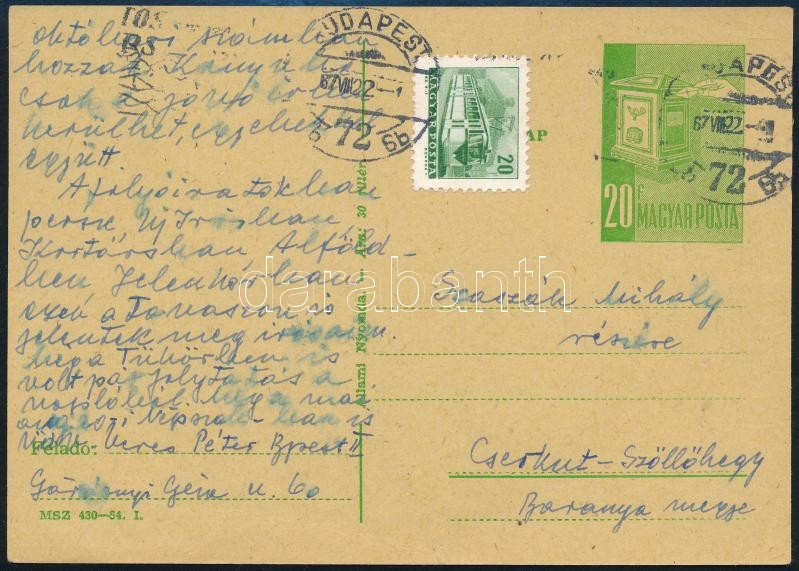 októberi számban
hozza. Könyvbe
csak a jövő évben
kerülhet, egy
együtt.
A folyóiratokban
persze, Új Írásban
Kortársban Alföld-
ben Jelenkorban
ezen a tavaszon is
jelentek meg írásaim.
meg a Tükörben is
volt pár folytatás a
naplóból. Meg a mai
aug. 20-i Népszab-ban is
Üdv. Veres Péter Bpest II
Feladó:
Gárdonyi Géza u. 60
MSZ 430—54. I.
Állami Nyomda. — Ára: 30 fillér
BUDAPEST
67 VIII 22 -1
72
6b
MAGYAR POSTA
20
AP
BUDAPEST
67 VIII 22
72
20 f
MAGYAR POSTA
darabanth
Szaszák Mihály
részére
Cserkut-Szöllőhegy
Baranya megye